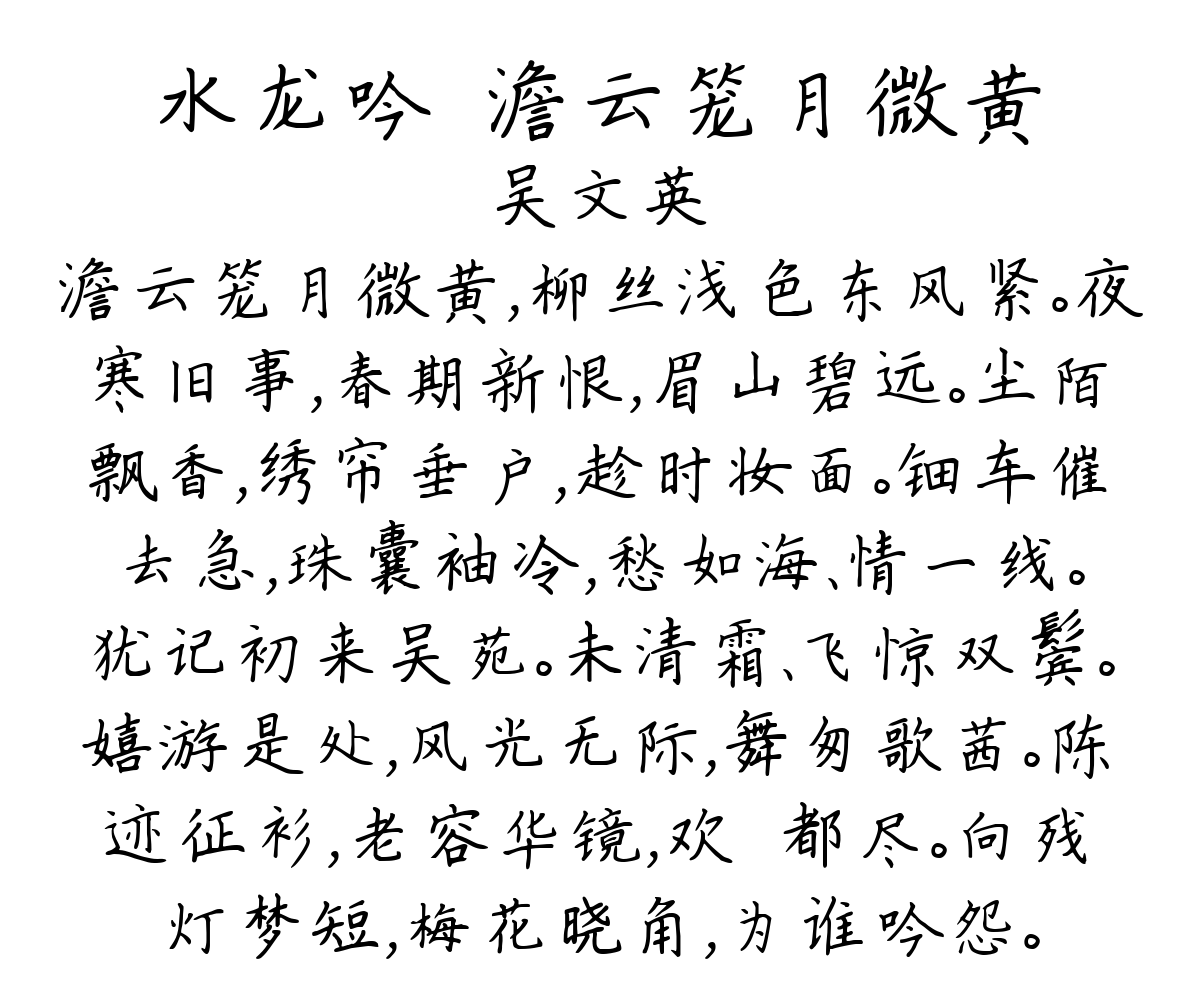 水龙吟 澹云笼月微黄
吴文英
澹云笼月微黄,柳丝浅色东风紧。夜
寒旧事,春期新恨,眉山碧远。尘陌
飘香,绣帘垂户,趁时妆面。钿车催
去急,珠囊袖冷,愁如海、情一线。
犹记初来吴苑。未清霜、飞惊双鬓。
嬉游是处,风光无际,舞匆歌茜。陈
迹征衫,老容华镜,欢 都尽。向残
灯梦短,梅花晓角,为谁吟怨。